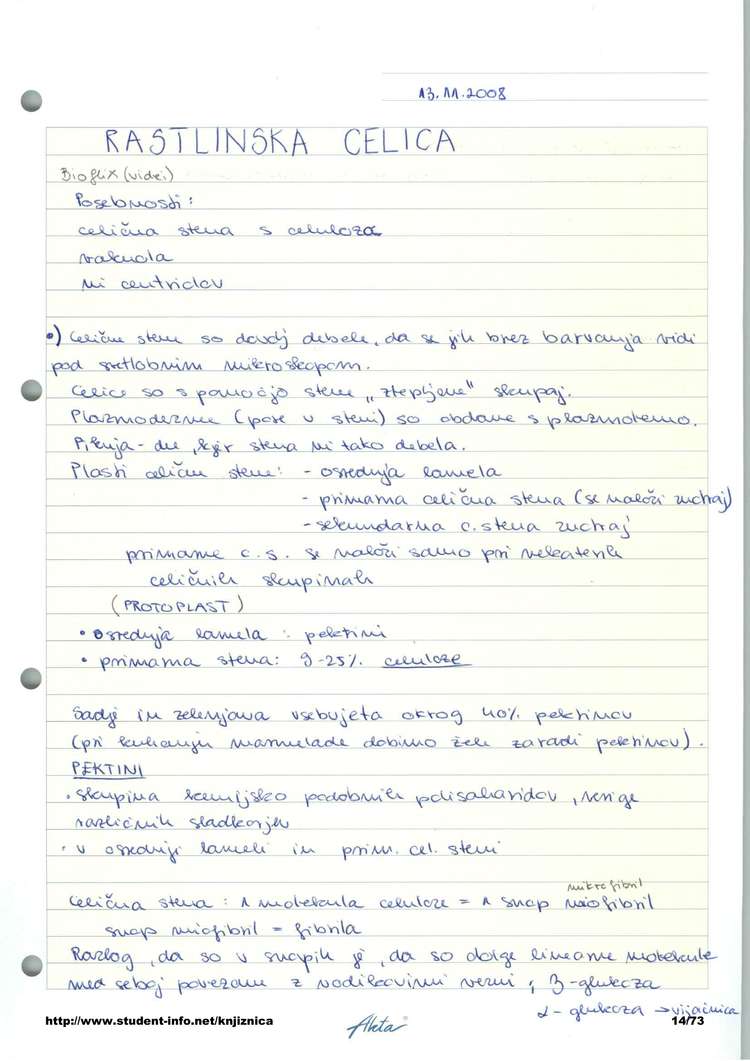 13.11.2008
RASTLINSKA CELICA
Bioflix (videi)
Posebnosti:
celična stena s celuloza
vakuola
ni centriolov
•) Celične stene so dovolj debele, da se jih brez barvanja vidi
pod svetlobnim mikroskopom.
Celice so s pomočjo stene „zlepljene" skupaj.
Plazmodezme (pore v steni) so obdane s plazmolemo.
Piknja - del, kjer stena ni tako debela.
Plasti celične stene: - osrednja lamela
- primarna celična stena (se naloži znotraj)
- sekundarna c. stena znotraj
primarne c.s. se naloži samo pri nekaterih
celičnih skupinah
(PROTOPLAST)
• osrednja lamela : pektini
• primarna stena: 9-25% celuloze
Sadje in zelenjava vsebujeta okrog 40% pektinov
(pri kuhanju marmelade dobimo žele zaradi pektinov).
PEKTINI
• skupina kemijsko podobnih polisaharidov, verige
različnih sladkorjev
• v osrednji lameli in prim. cel. steni
mikrofibril
Celična stena : 1 molekula celuloze = 1 snop miofibril
snop miofibril = fibrila
Razlog, da so v snopih je, da so dolge linearne molekule
med seboj povezane z vodikovimi vezmi; β-glukoza
α - glukoza → vijačnica
http://www.student-info.net/knjiznica
Aleta
14/73